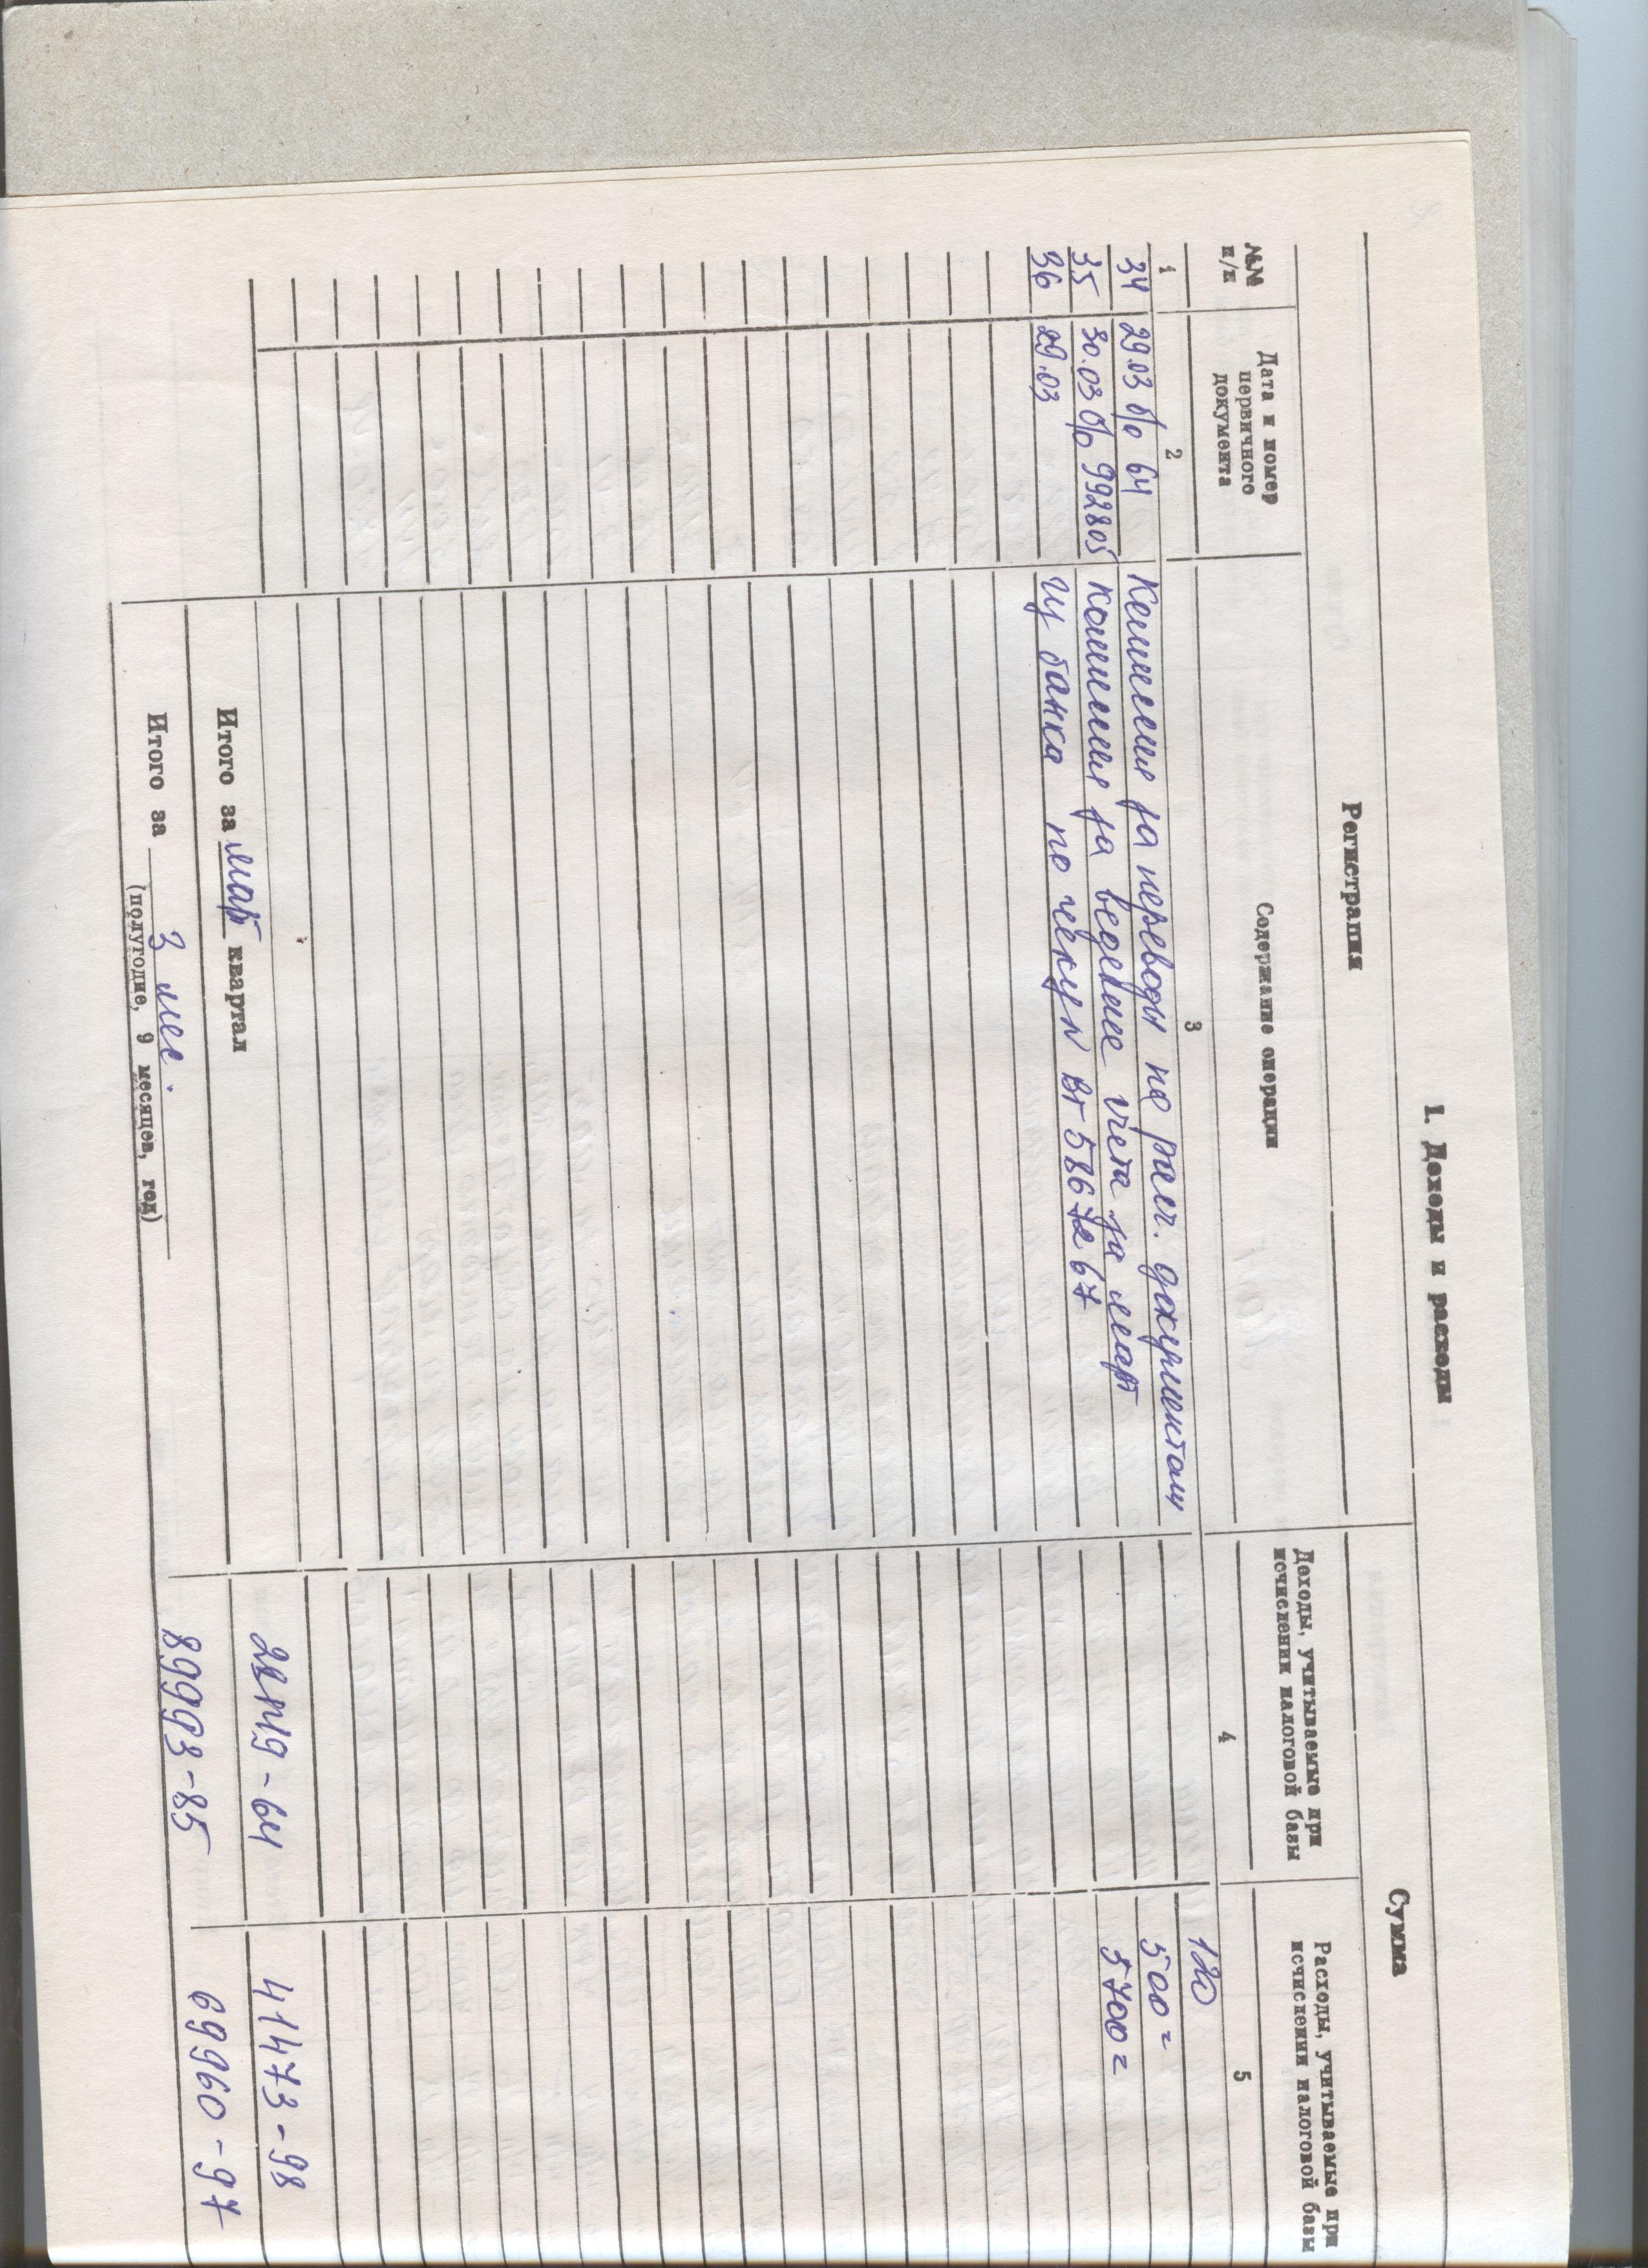 1. Доходы и расходы
Регистрация
Сумма
№№ п/п
Дата и номер первичного документа
Содержание операции
Доходы, учитываемые при исчислении налоговой базы
Расходы, учитываемые при исчислении налоговой базы
1 2 3 4 5
34 29.03 б/о 64 Комиссия за переводы по расч. документам 120
35 30.03 б/о 992805 комиссия за ведение счета за март 500=
36 29.03 Из банка по чеку N ВГ 5867267 5700=
Итого за март квартал 41473-98
Итого за 3 мес. 89993-85 69960-97
(полугодие, 9 месяцев, год)